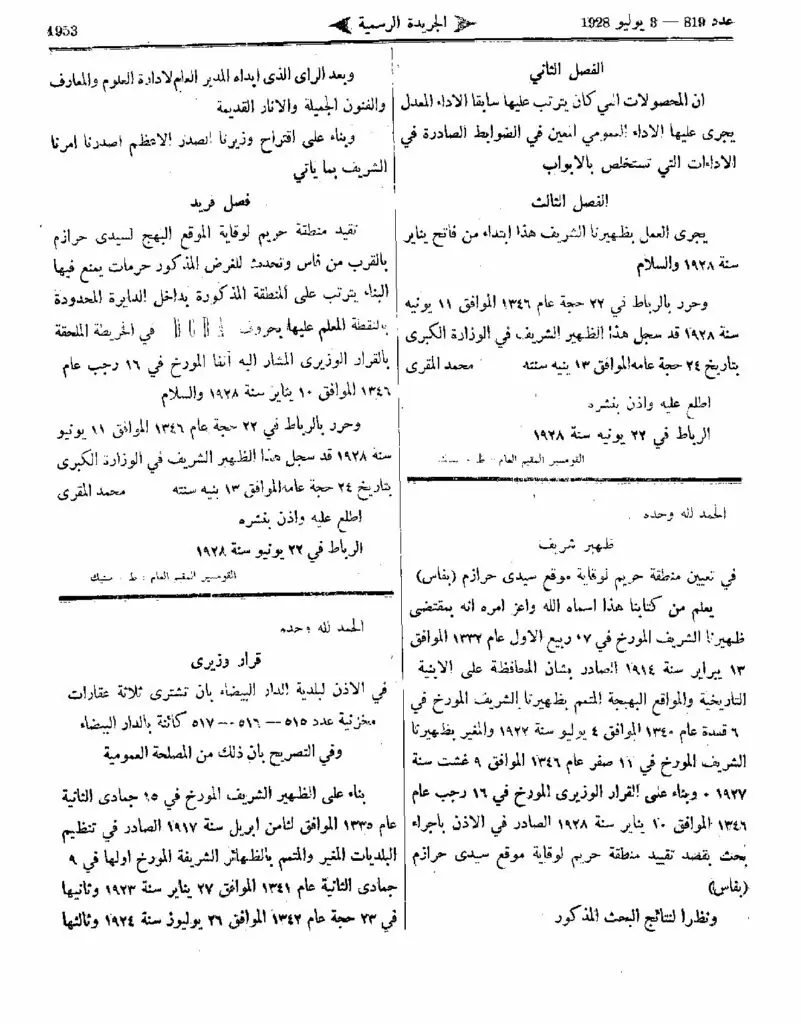 عدد 819 — 3 يوليو 1928
الجريدة الرسمية
1953
الفصل الثاني
ان المحصولات التي كان يترتب عليها سابقا الاداء المعدل
يجرى عليها الاداء العمومي المعين في الضوابط الصادرة في
الاداءات التي تستخلص بالابواب
الفصل الثالث
يجرى العمل بظهيرنا الشريف هذا ابتداء من فاتح يناير
سنة ١٩٢٨ والسلام
وحرر بالرباط في ٢٢ حجة عام ١٣٤٦ الموافق ١١ يونيه
سنة ١٩٢٨ قد سجل هذا الظهير الشريف في الوزارة الكبرى
بتاريخ ٢٤ حجة عامه الموافق ١٣ ينيه سنته محمد المقرى
اطلع عليه واذن بنشره
الرباط في ٢٢ يونيه سنة ١٩٢٨
القومسير المقيم العام : ط . ستيك
الحمد لله وحده
ظهير شريف
في تعيين منطقة حريم لوقاية موقع سيدى حرازم (بفاس)
يعلم من كتابنا هذا اسماه الله واعز امره انه بمقتضى
ظهيرنا الشريف المورخ في ١٧ ربيع الاول عام ١٣٣٢ الموافق
١٣ يبراير سنة ١٩١٤ الصادر بشان المحافظة على الابنية
التاريخية والمواقع البهجة المتمم بظهيرنا الشريف المورخ في
٦ قعدة عام ١٣٤٠ الموافق ٤ يوليو سنة ١٩٢٢ والمغير بظهيرنا
الشريف المورخ في ١١ صفر عام ١٣٤٦ الموافق ٩ غشت سنة
١٩٢٧ . وبناء على القرار الوزيرى المورخ في ١٦ رجب عام
١٣٤٦ الموافق ١٠ يناير سنة ١٩٢٨ الصادر في الاذن باجراء
بحث بقصد تقييد منطقة حريم لوقاية موقع سيدى حرازم
(بفاس)
ونظرا لنتائج البحث المذكور
وبعد الراى الذى ابداه المدير العام لادارة العلوم والمعارف
والفنون الجميلة والاثار القديمة
وبناء على اقتراح وزيرنا الصدر الاعظم اصدرنا امرنا
الشريف بما ياتي
فصل فريد
تقيد منطقة حريم لوقاية الموقع البهج لسيدى حرازم
بالقرب من فاس وتحدث للغرض المذكور حرمات يمنع فيها
البناء يترتب على المنطقة المذكورة بداخل الدايرة المحدودة
بالنقطة المعلم عليها بحروف في الخريطة الملحقة
بالقرار الوزيرى المشار اليه آنفا المورخ في ١٦ رجب عام
١٣٤٦ الموافق ١٠ يناير سنة ١٩٢٨ والسلام
وحرر بالرباط في ٢٢ حجة عام ١٣٤٦ الموافق ١١ يونيو
سنة ١٩٢٨ قد سجل هذا الظهير الشريف في الوزارة الكبرى
بتاريخ ٢٤ حجة عامه الموافق ١٣ ينيه سنته محمد المقرى
اطلع عليه واذن بنشره
الرباط في ٢٢ يونيو سنة ١٩٢٨
القومسير المقيم العام : ط . ستيك
الحمد لله وحده
قرار وزيرى
في الاذن لبلدية الدار البيضاء بان تشترى ثلاثة عقارات
مخزنية عدد ٥١٥ — ٥١٦ — ٥١٧ كائنة بالدار البيضاء
وفي التصريح بان ذلك من المصلحة العمومية
بناء على الظهير الشريف المورخ في ١٥ جمادى الثانية
عام ١٣٣٥ الموافق لثامن ابريل سنة ١٩١٧ الصادر في تنظيم
البلديات المغير والمتمم بالظهائر الشريفة المورخ اولها في ٩
جمادى الثانية عام ١٣٤١ الموافق ٢٧ يناير سنة ١٩٢٣ وثانيها
في ٢٣ حجة عام ١٣٤٢ الموافق ٢٦ يوليوز سنة ١٩٢٤ وثالثها